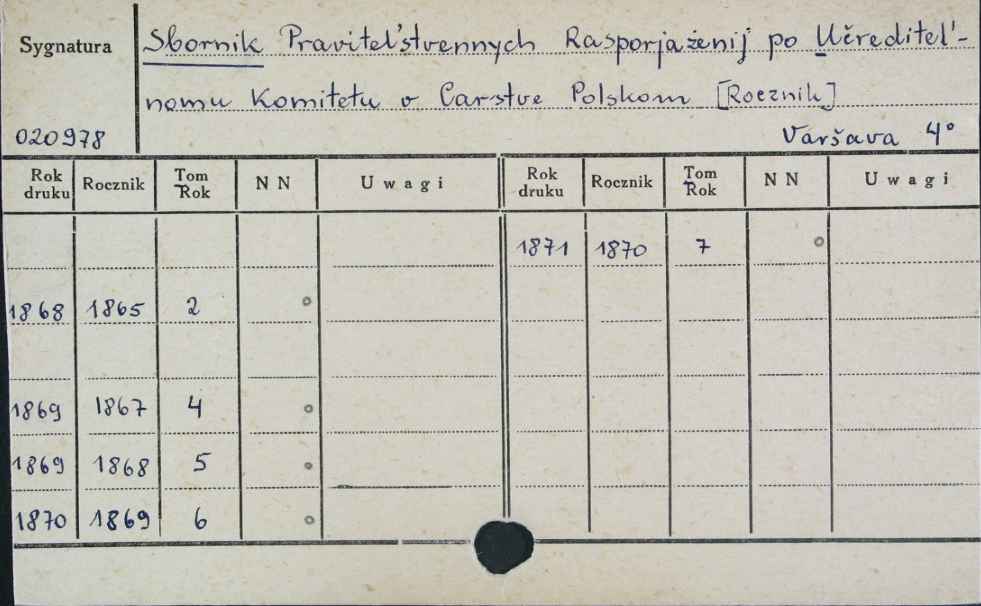 Sygnatura
Sbornik Pravitel'stvennych Rasporjaženij po Učreditel'-
nomu Komitetu v Carstve Polskom [Rocznik]
020978
Varšava 4°
Rok druku Rocznik Tom Rok N N Uwagi Rok druku Rocznik Tom Rok N N Uwagi
1871 1870 7 o
1868 1865 2 o
1869 1867 4 o
1869 1868 5 o
1870 1869 6 o